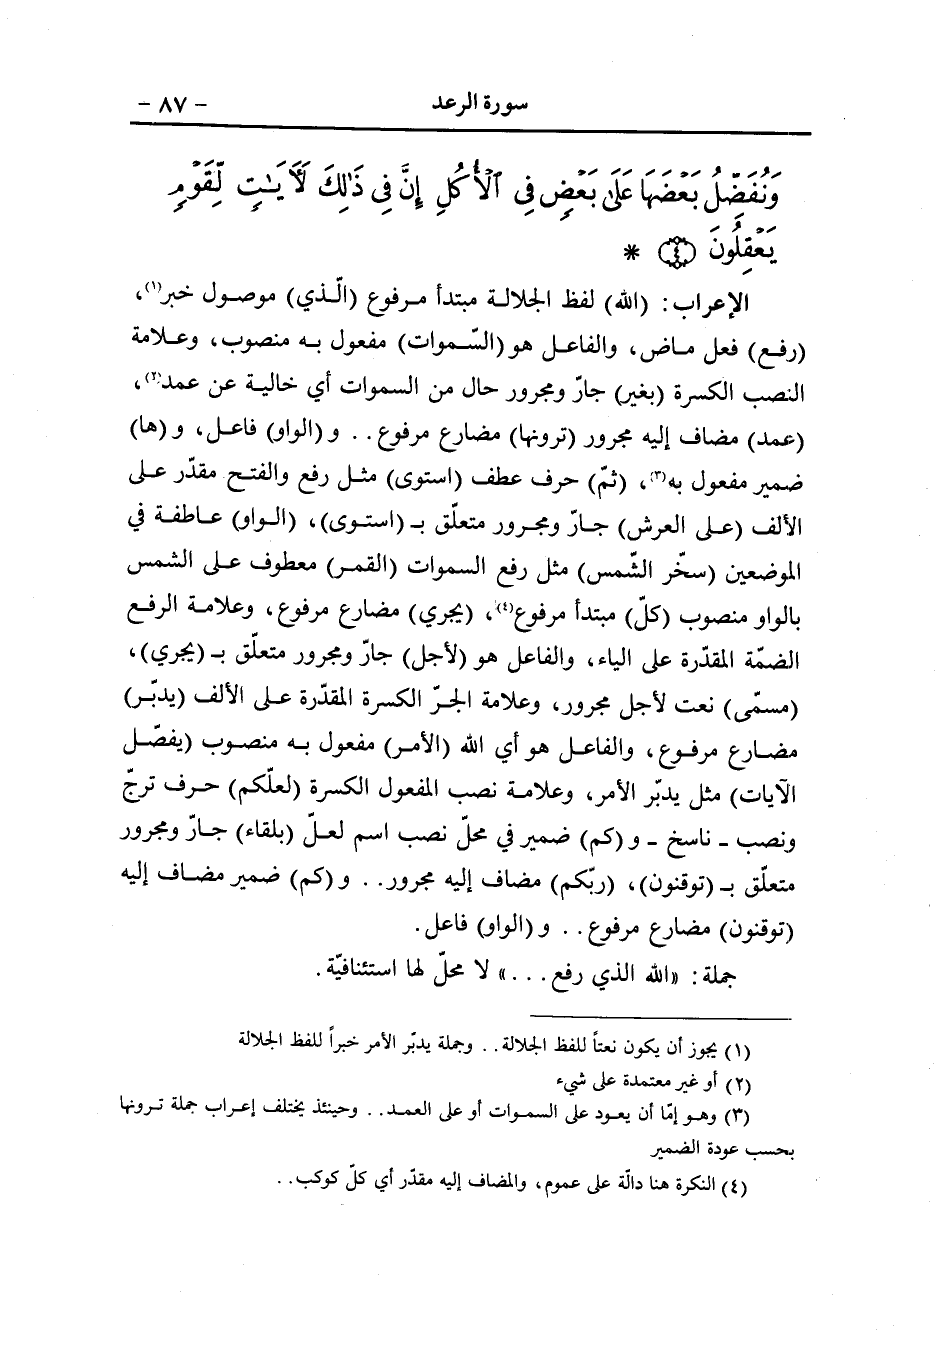 سورة الرعد - ٨٧ -
وَنُفَضِّلُ بَعْضَهَا عَلَىٰ بَعْضٍ فِى ٱلْأُكُلِ إِنَّ فِى ذَٰلِكَ لَآيَٰتٍ لِّقَوْمٍ
يَعْقِلُونَ (٤) *
الإعراب: (الله) لفظ الجلالة مبتدأ مرفوع (الّذي) موصول خبر(١)،
(رفع) فعل ماض، والفاعل هو (السّموات) مفعول به منصوب، وعلامة
النصب الكسرة (بغير) جارّ ومجرور حال من السموات أي خالية عن عمد(٢)،
(عمد) مضاف إليه مجرور (ترونها) مضارع مرفوع.. و (الواو) فاعل، و (ها)
ضمير مفعول به(٣)، (ثمّ) حرف عطف (استوى) مثل رفع والفتح مقدّر على
الألف (على العرش) جارّ ومجرور متعلّق بـ (استوى)، (الواو) عاطفة في
الموضعين (سخّر الشّمس) مثل رفع السموات (القمر) معطوف على الشمس
بالواو منصوب (كلّ) مبتدأ مرفوع(٤)، (يجري) مضارع مرفوع، وعلامة الرفع
الضمّة المقدّرة على الياء، والفاعل هو (لأجل) جارّ ومجرور متعلّق بـ (يجري)،
(مسمّى) نعت لأجل مجرور، وعلامة الجرّ الكسرة المقدّرة على الألف (يدبّر)
مضارع مرفوع، والفاعل هو أي الله (الأمر) مفعول به منصوب (يفصّل
الآيات) مثل يدبّر الأمر، وعلامة نصب المفعول الكسرة (لعلّكم) حرف ترجّ
ونصب ـ ناسخ ـ و (كم) ضمير في محلّ نصب اسم لعلّ (بلقاء) جارّ ومجرور
متعلّق بـ (توقنون)، (ربّكم) مضاف إليه مجرور.. و (كم) ضمير مضاف إليه
(توقنون) مضارع مرفوع.. و (الواو) فاعل.
جملة: «الله الذي رفع...» لا محلّ لها استئنافيّة.
(١) يجوز أن يكون نعتاً للفظ الجلالة.. وجملة يدبّر الأمر خبراً للفظ الجلالة
(٢) أو غير معتمدة على شيء
(٣) وهو إمّا أن يعود على السموات أو على العمد.. وحينئذ يختلف إعراب جملة ترونها
بحسب عودة الضمير
(٤) النكرة هنا دالّة على عموم، والمضاف إليه مقدّر أي كلّ كوكب..